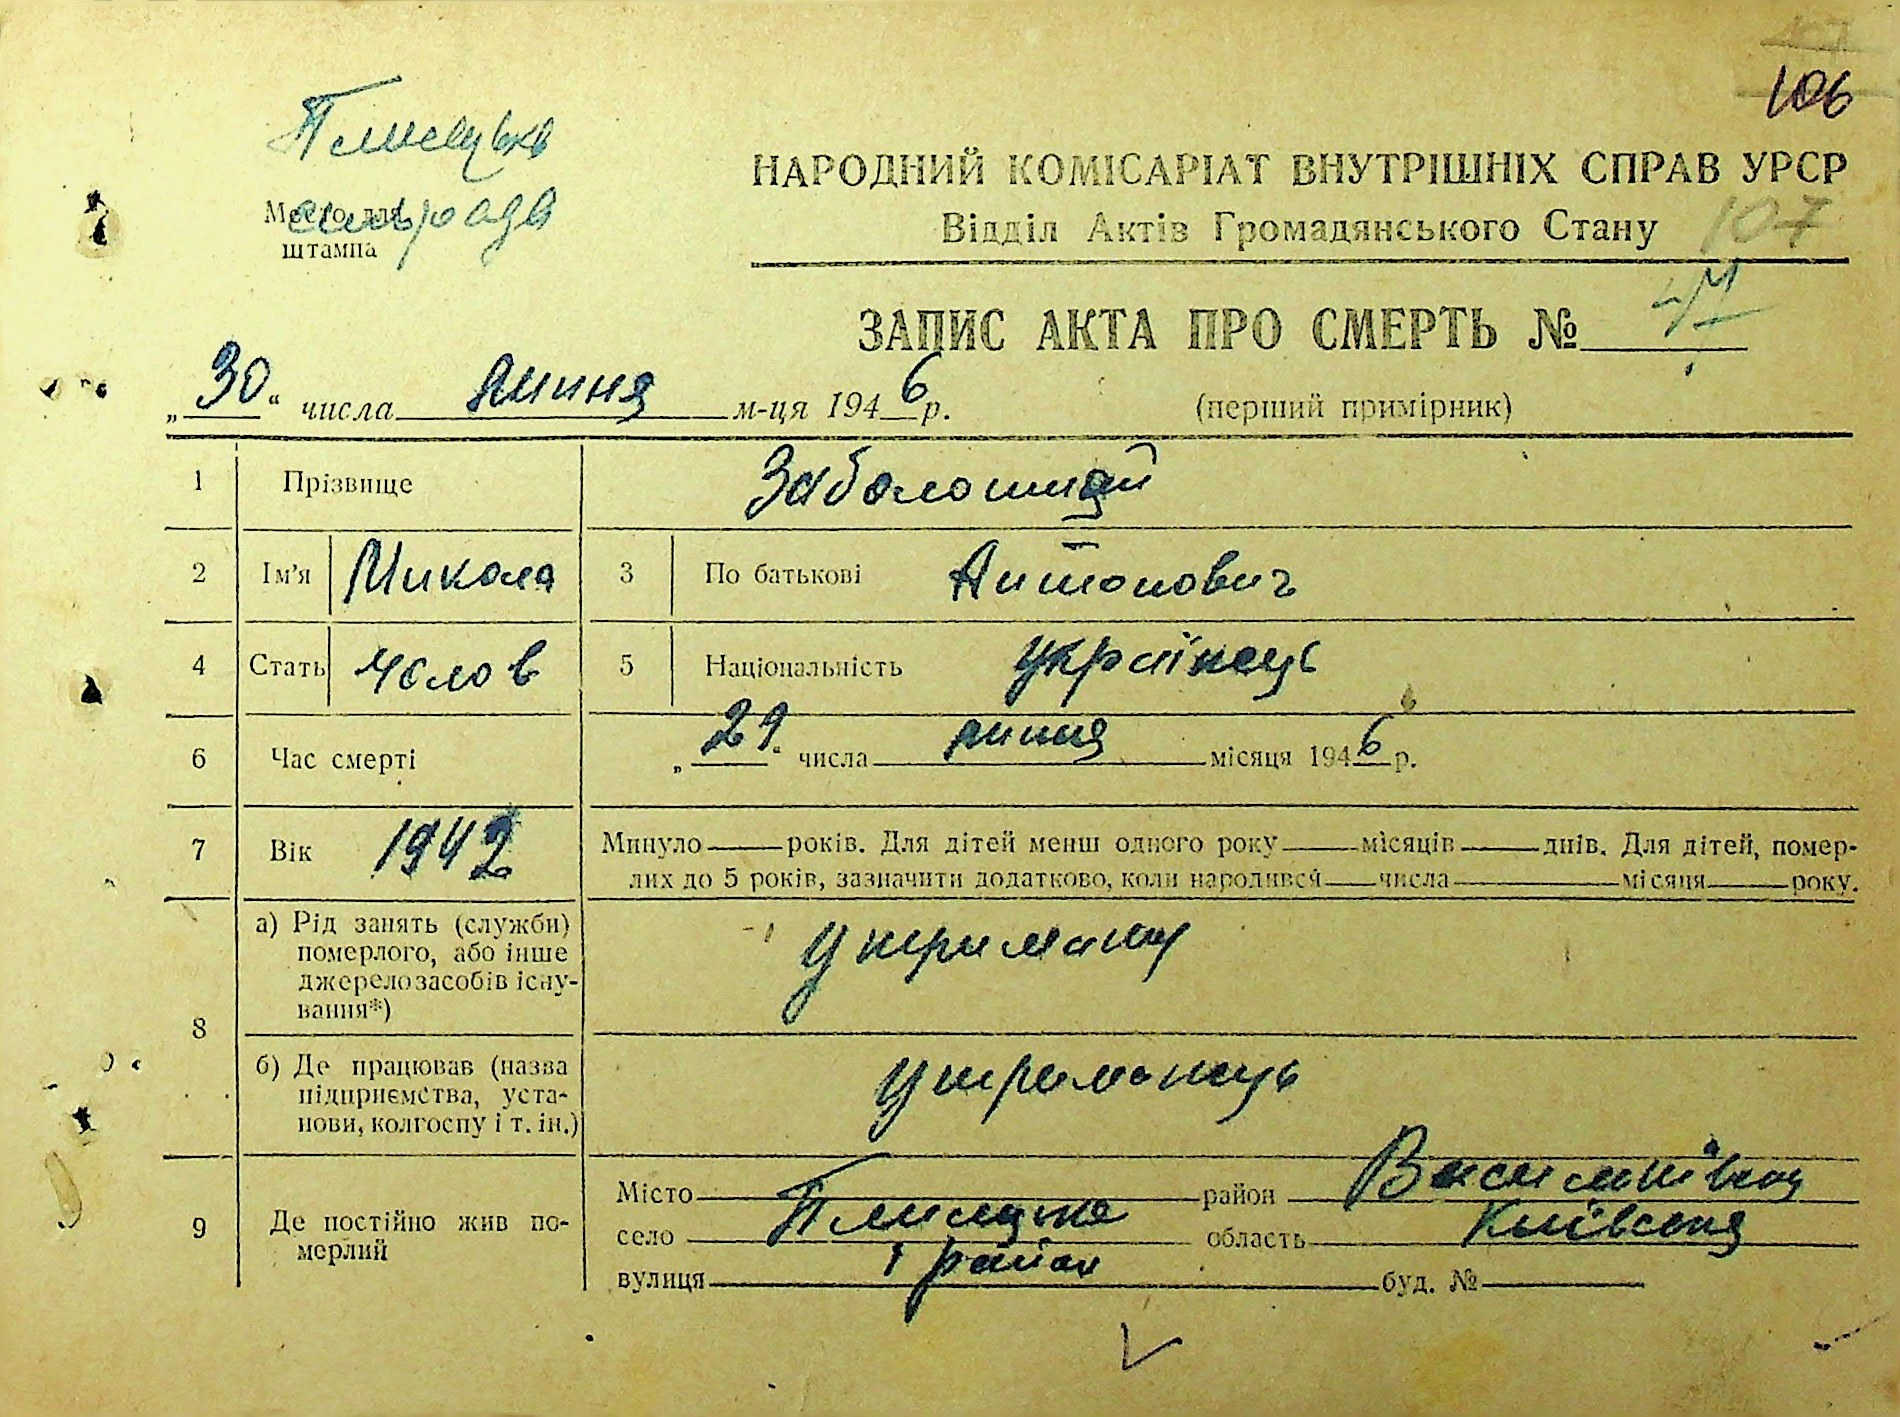 106
Плисецька
сільрада
Место для
штампа
НАРОДНИЙ КОМІСАРІАТ ВНУТРІШНІХ СПРАВ УРСР
Відділ Актів Громадянського Стану 107
ЗАПИС АКТА ПРО СМЕРТЬ №
„30“ числа липня м-ця 1946 р.
(перший примірник)
1 Прізвище Заболотній
2 Ім'я Микола 3 По батькові Антонович
4 Стать чолов 5 Національність українець
6 Час смерті „29“ числа липня місяця 1946 р.
7 Вік 1942 Минуло років. Для дітей менш одного року місяців днів. Для дітей, помер-
лих до 5 років, зазначити додатково, коли народився числа місяця року.
8 а) Рід занять (служби)
померлого, або інше
джерело засобів існу-
вання*)
утриманц
б) Де працював (назва
підприємства, уста-
нови, колгоспу і т. ін.)
утриманець
9 Де постійно жив по-
мерлий
Місто район Васильківськ
село Плисецьке область Київська
вулиця район буд. №